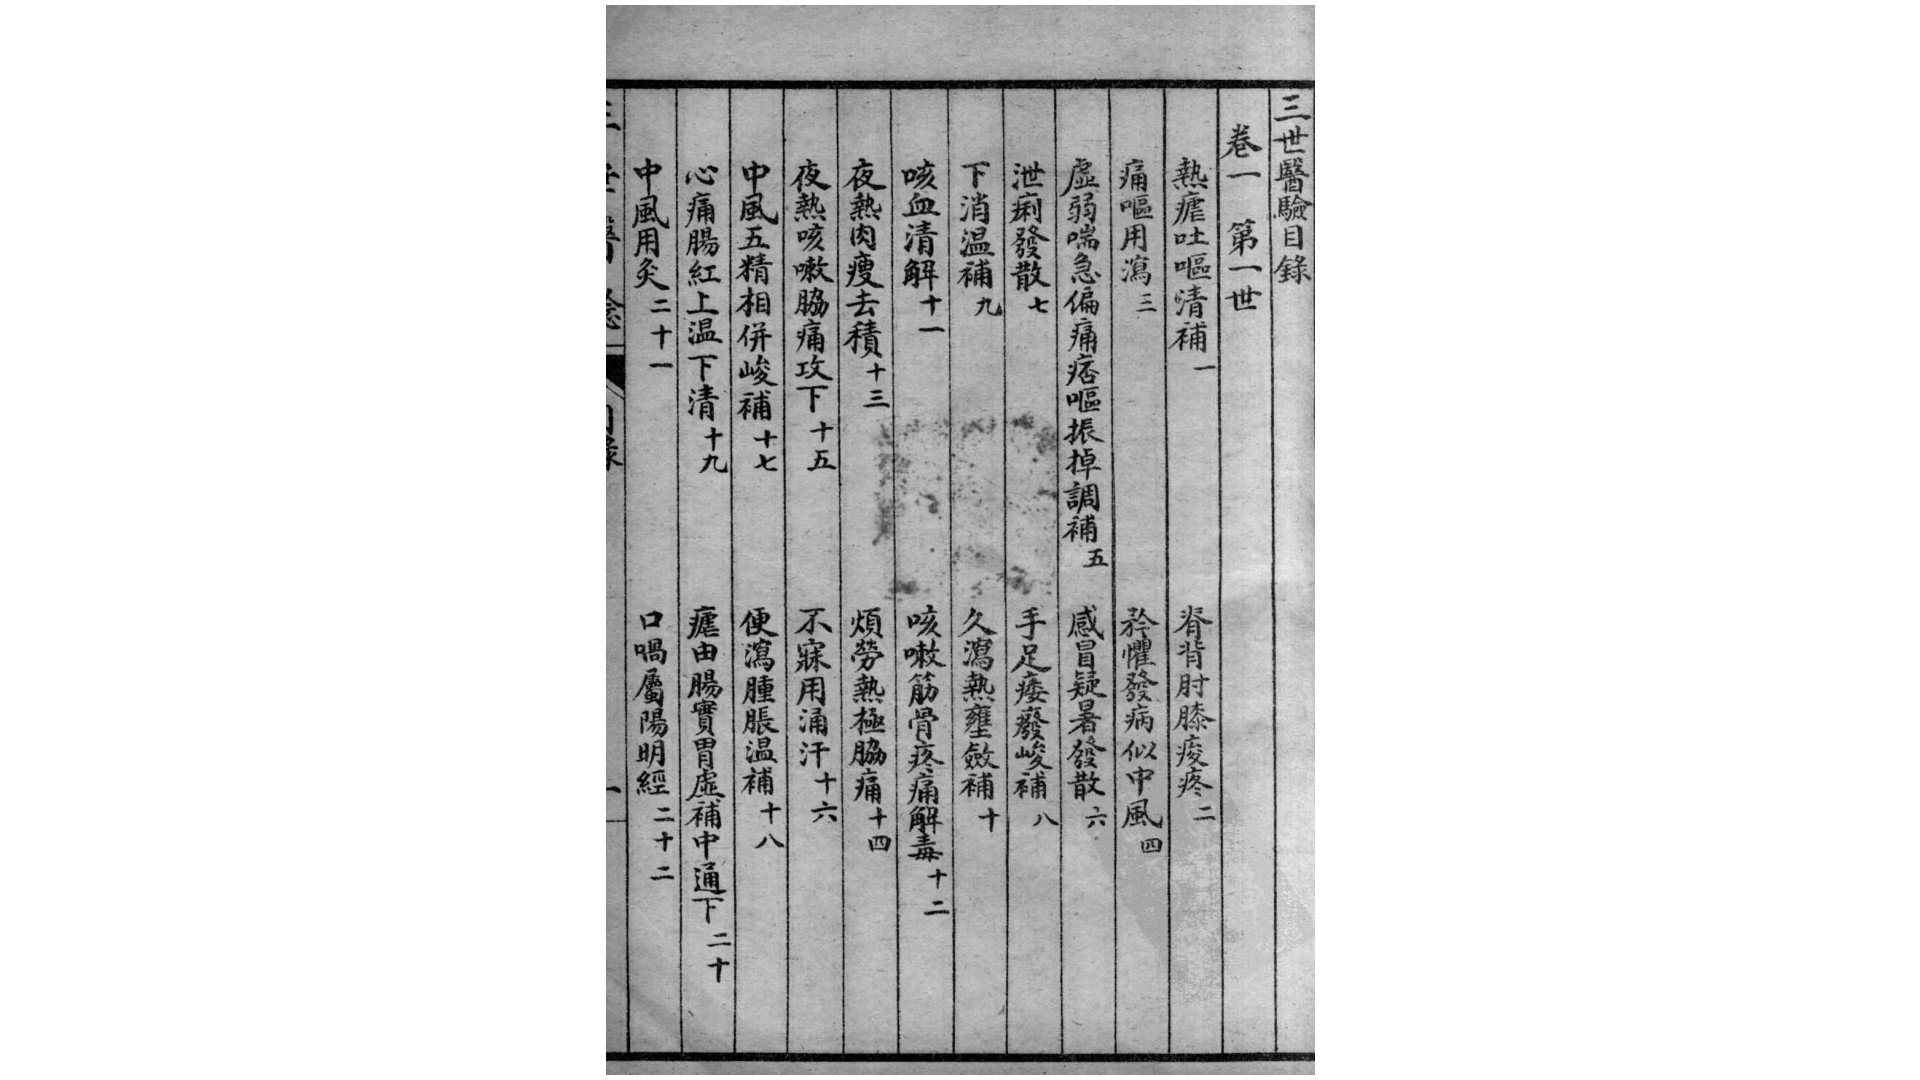 三世醫驗目錄
卷一　第一世
熱瘧吐嘔清補 一　脊背肘膝痠疼 二
痛嘔用瀉 三　矜懼發病似中風 四
虛弱喘急偏痛痞嘔振掉調補 五　感冒疑暑發散 六
泄痢發散 七　手足痿癈峻補 八
下消溫補 九　久瀉熱壅斂補 十
咳血清解 十一　咳嗽筋骨疼痛解毒 十二
夜熱肉瘦去積 十三　煩勞熱極脇痛 十四
夜熱咳嗽脇痛攻下 十五　不寐用涌汗 十六
中風五精相併峻補 十七　便瀉腫脹温補 十八
心痛腸紅上温下清 十九　瘧由腸實胃虛補中通下 二十
中風用灸 二十一　口喎屬陽明經 二十二
三世醫驗　目錄　一